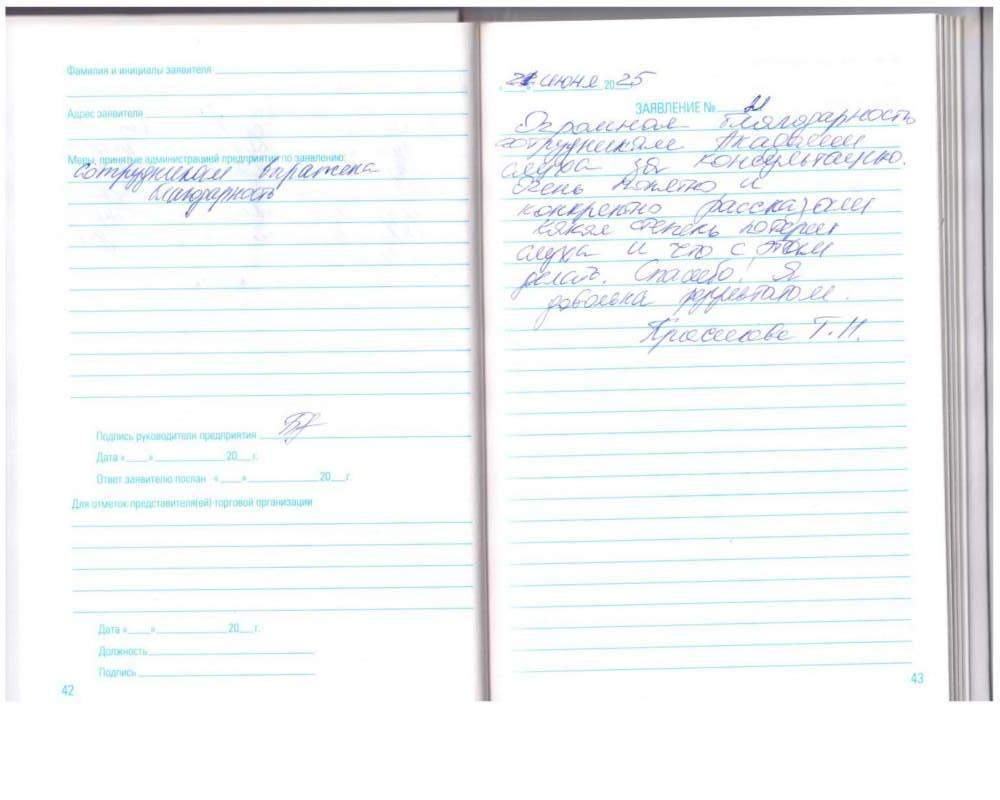 Фамилия и инициалы заявителя
Адрес заявителя
Меры, принятые администрацией предприятия по заявлению:
сотрудникам выражена
благодарность
Подпись руководителя предприятия
Дата «___» ________ 20__г.
Ответ заявителю послан «___» ________ 20__г.
Для отметок представителя(ей) торговой организации
Дата «___» ________ 20__г.
Должность
Подпись
42
июня 2025
ЗАЯВЛЕНИЕ № 21
Огромная благодарность
сотрудникам Академии
слуха за консультацию.
Очень понятно и
конкретно рассказали
какая степень потери
слуха и что с этим
делать. Спасибо! Я
довольна результатом.
Т.Н.
43